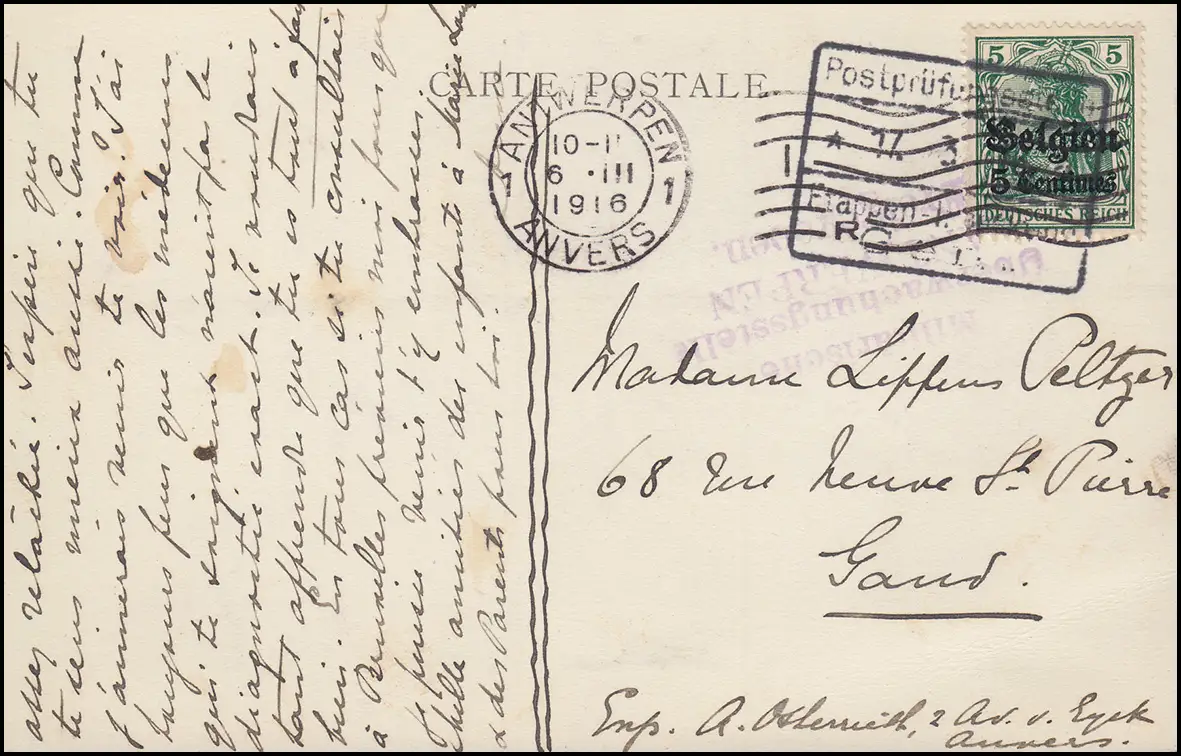 CARTE POSTALE
ANTWERPEN
10-11
6 · III
1916
1 1
ANVERS
Postprüfungsstelle
* 17. 3
Etappen-
5 5
Belgien
5 Centimes
DEUTSCHES REICH
Militärische
Überwachungsstelle
Madame Lippens Peltzer
68 rue Neuve St. Pierre
Gand.
Exp. A. Osterrieth, 2 Av. v. Eyck
Anvers.
assez relâchée. J'espère que tu
te sens mieux aussi. Comme
j'aimerais venir te voir. J'ai
toujours peur que les médecins
qui te soignent n'aient pas le
diagnostic exact. Je voudrais
tant apprendre que tu es tout à fait
bien. En tous cas si tu consultais
à Bruxelles préviens moi pour que
je puisse venir t'y embrasser.
Mille amitiés des enfants à Marie
& des Parents pour toi.